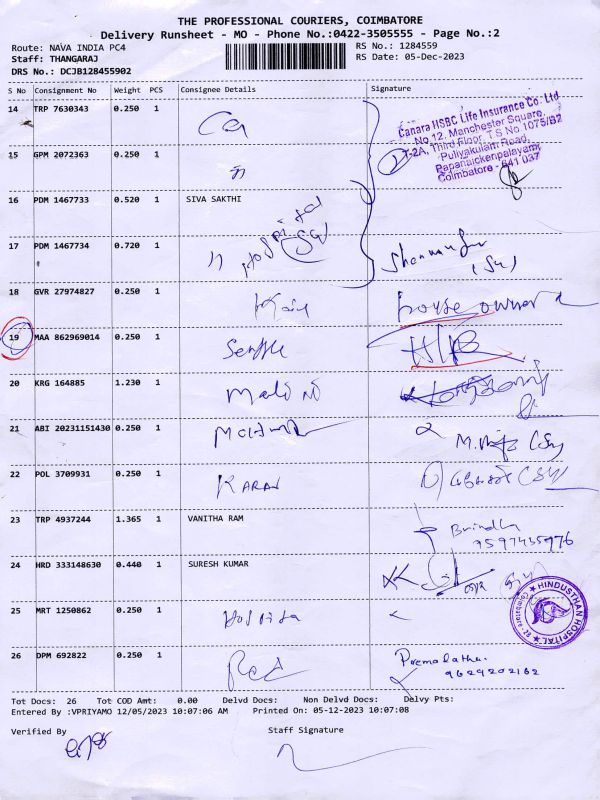 THE PROFESSIONAL COURIERS, COIMBATORE
Delivery Runsheet - MO - Phone No.:0422-3505555 - Page No.:2
Route: NAVA INDIA PC4 RS No.: 1284559
Staff: THANGARAJ RS Date: 05-Dec-2023
DRS No.: DCJB128455902
S No Consignment No Weight PCS Consignee Details Signature
14 TRP 7630343 0.250 1
Canara HSBC Life Insurance Co. Ltd
No.12, Manchester Square,
T-2A, Third Floor, T S No 1075/B2
Puliyakulam Road,
Papanaickenpalayam
Coimbatore - 641 037
15 GPM 2072363 0.250 1
16 PDM 1467733 0.520 1 SIVA SAKTHI
17 PDM 1467734 0.720 1 Hospital
18 GVR 27974827 0.250 1 house owner
19 MAA 862969014 0.250 1
20 KRG 164885 1.230 1
21 ABI 20231151430 0.250 1
22 POL 3709931 0.250 1 KARAN
23 TRP 4937244 1.365 1 VANITHA RAM Brindha
9597435976
24 HRD 333148630 0.440 1 SURESH KUMAR
HINDUSTHAN HOSPITAL
25 MRT 1250862 0.250 1
26 DPM 692822 0.250 1 Premalatha
9629202162
Tot Docs: 26 Tot COD Amt: 0.00 Delvd Docs: Non Delvd Docs: Delvy Pts:
Entered By :VPRIYAMO 12/05/2023 10:07:06 AM Printed On: 05-12-2023 10:07:08
Verified By Staff Signature